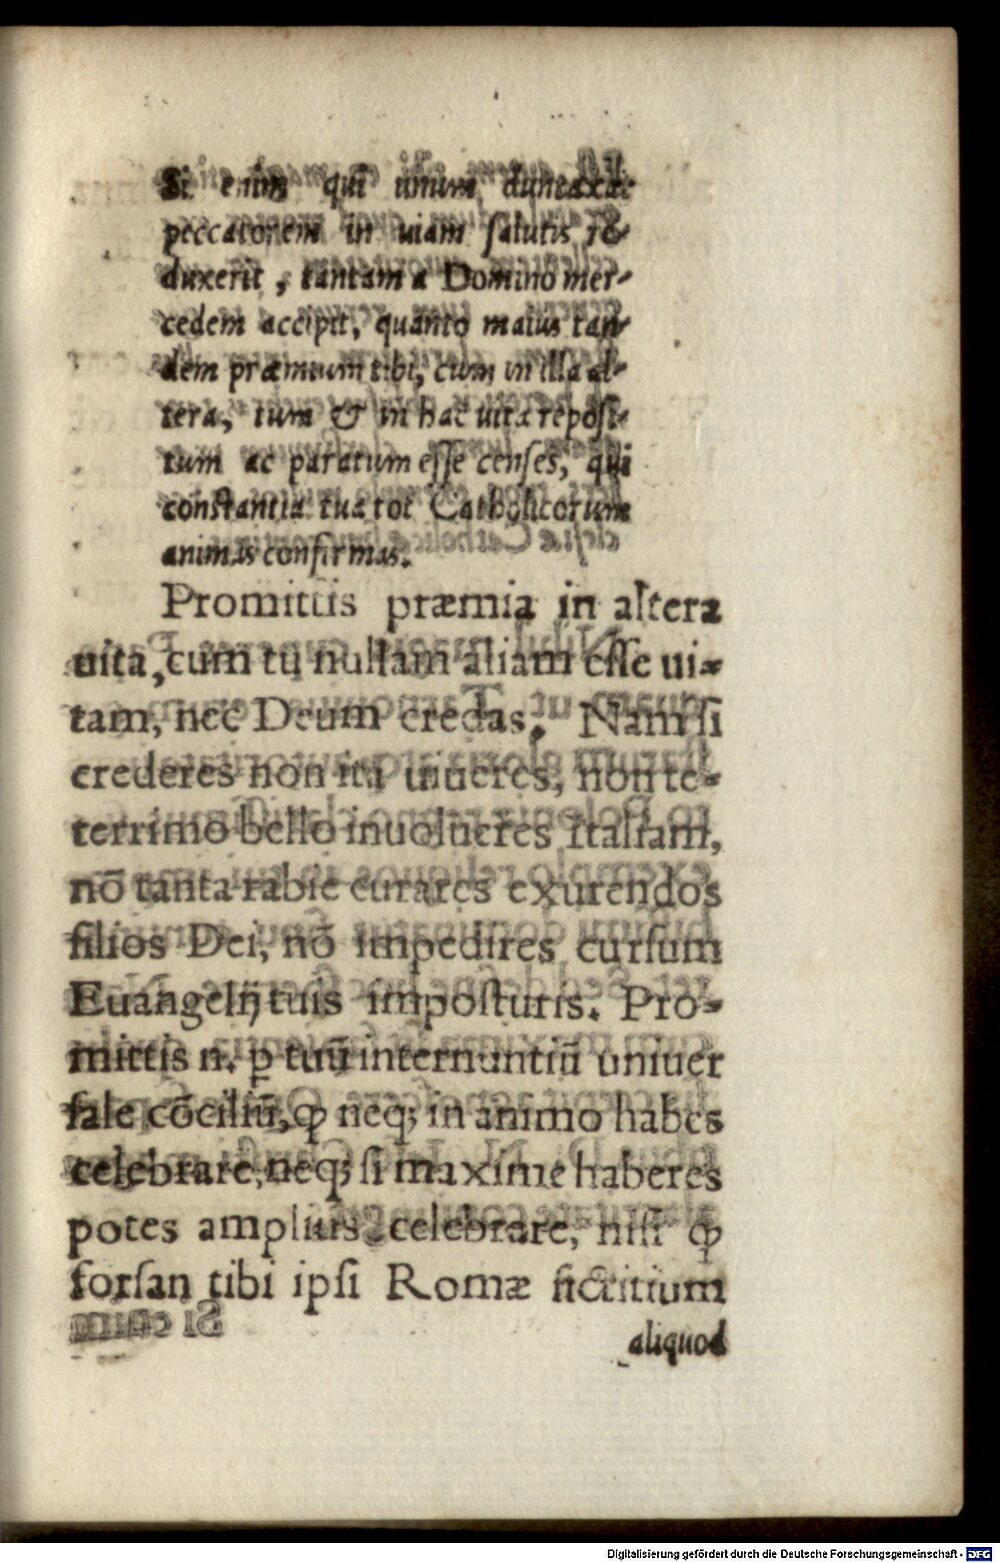 Si enim qui unum duntaxat
peccatorem in uiam salutis re-
duxerit, tantam a Domino mer-
cedem accipit, quanto maius tan-
dem præmium tibi, cum in illa al-
tera, tum & in hac uita reposi-
tum ac paratum esse censes, qui
constantia tua tot Catholicorum
animas confirmas.
Promittis præmia in altera
uita, cum tu nullam aliam esse ui-
tam, nec Deum credas. Nam si
crederes non ita uiueres, non te-
terrimo bello inuolueres Italiam,
nō tanta rabie curares exurendos
filios Dei, nō impedires cursum
Euangelij tuis imposturis. Pro-
mittis n. ꝑ tuū internuntiū uniuer
sale cōciliū, ꝙ neqꝫ in animo habes
celebrare, neqꝫ si maxime haberes
potes amplius celebrare, nisi ꝙ
forsan tibi ipsi Romæ fictitium
aliquod
Digitalisierung gefördert durch die Deutsche Forschungsgemeinschaft - DFG